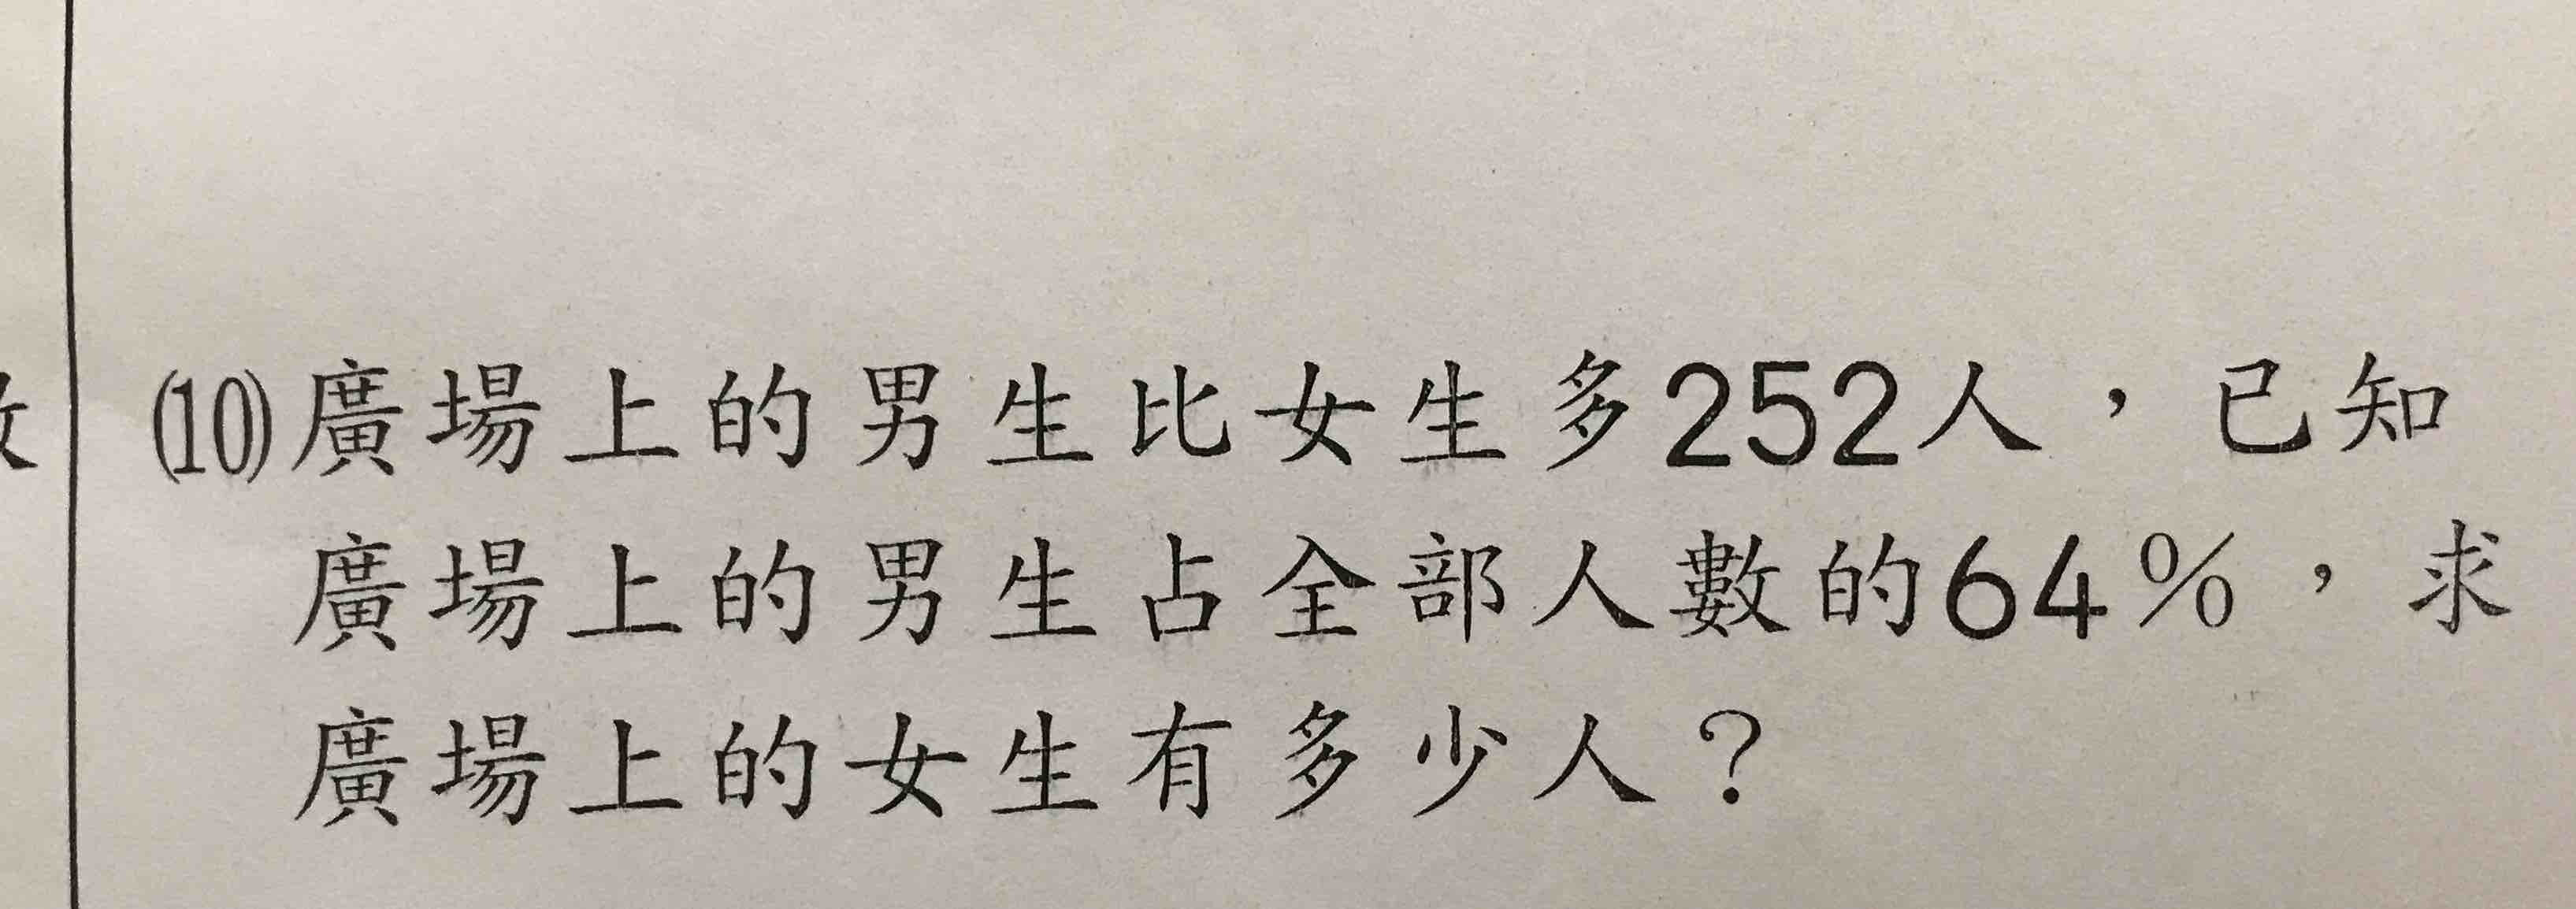 ⑽廣場上的男生比女生多252人，已知
廣場上的男生占全部人數的64%，求
廣場上的女生有多少人？